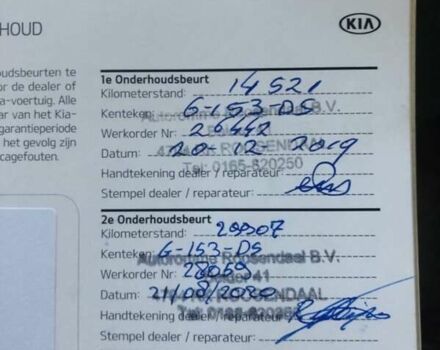 HOUD
KIA
udsbeurten te
or de dealer of
a-voertuig. Alle
ar van het Kia-
garantieperiode
het gevolg zijn
cagefouten.
1e Onderhoudsbeurt
Kilometerstand: 14521
Autoromme Roosendaal B.V.
Kenteken: G-153-DS
Werkorder Nr: 26442
ROOSENDAAL
Datum: 20-12-2019
Tel: 0165-620250
Handtekening dealer / reparateur:
Stempel dealer / reparateur:
2e Onderhoudsbeurt
Kilometerstand: 29907
Kenteken: G-153-DS
Autoromme Roosendaal B.V.
Werkorder Nr: 28069
41
Datum: 21/08/2020
ROOSENDAAL
Handtekening dealer / reparateur:
Stempel dealer / reparateur: